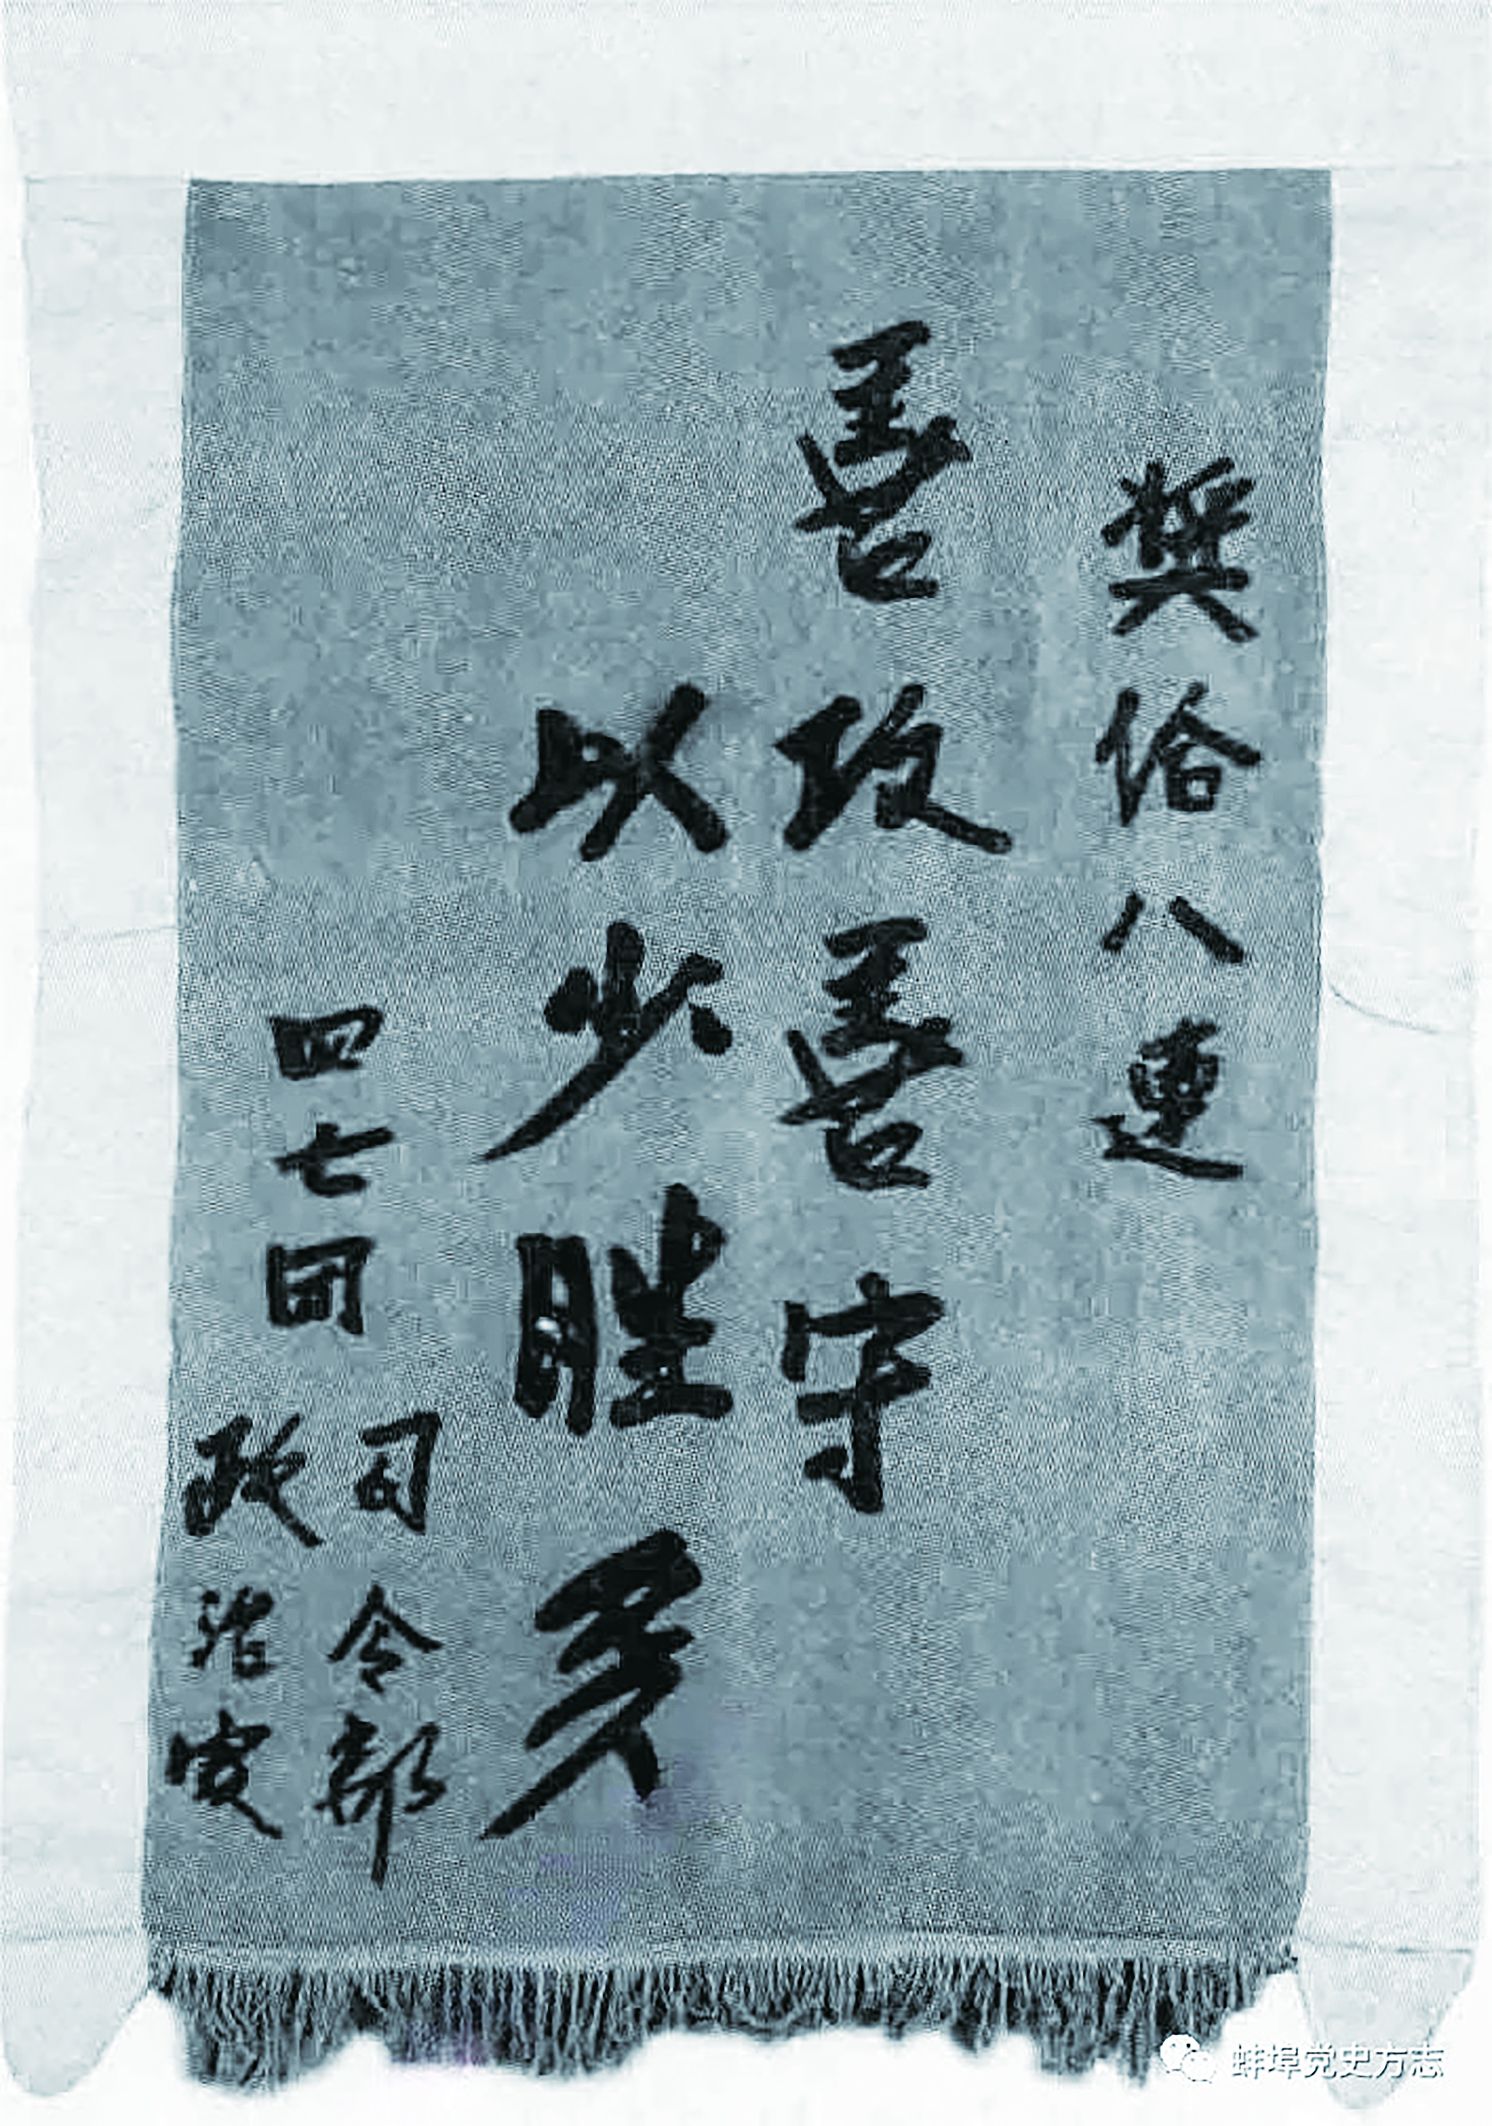 奖给八連
善攻善守
以少胜多
四七团
司令部
政治处
蚌埠党史方志